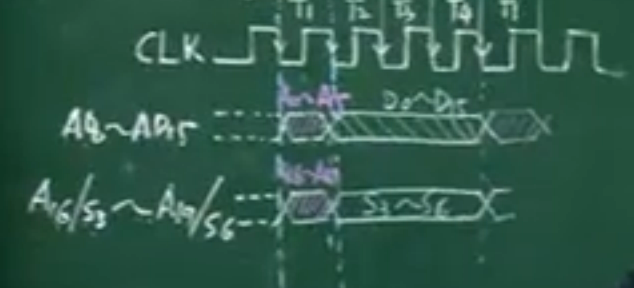 T1 T2 T3 T4 T1
CLK
A0~A15 D0~D15
AD0~AD15
A16~A19
A16/S3~A19/S6 S3~S6